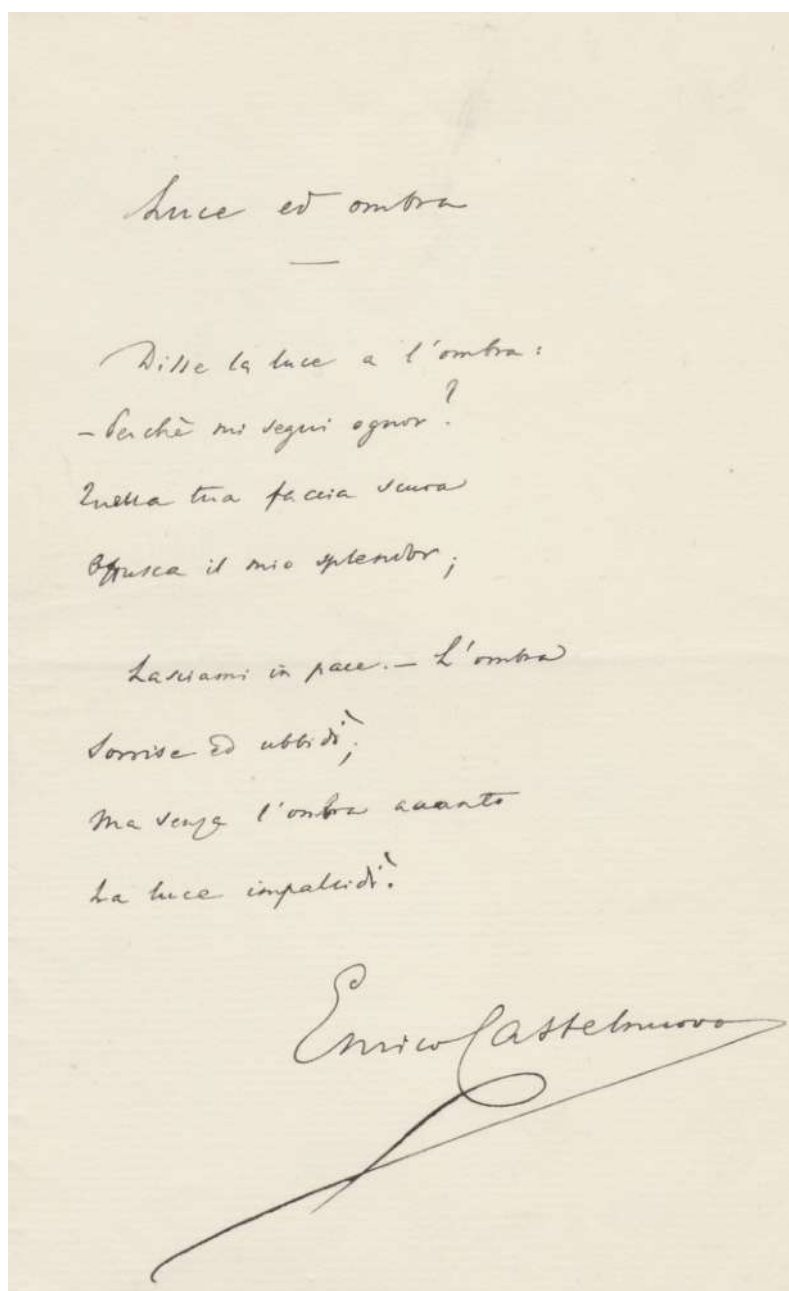 Luce ed ombra
Disse la luce a l'ombra:
– Perchè mi segui ognor?
Quella tua faccia scura
Offusca il mio splendor;
Lasciami in pace. – L'ombra
Sorrise ed ubbidì;
Ma senza l'ombra accanto
La luce impallidì.
Enrico Castelnuovo